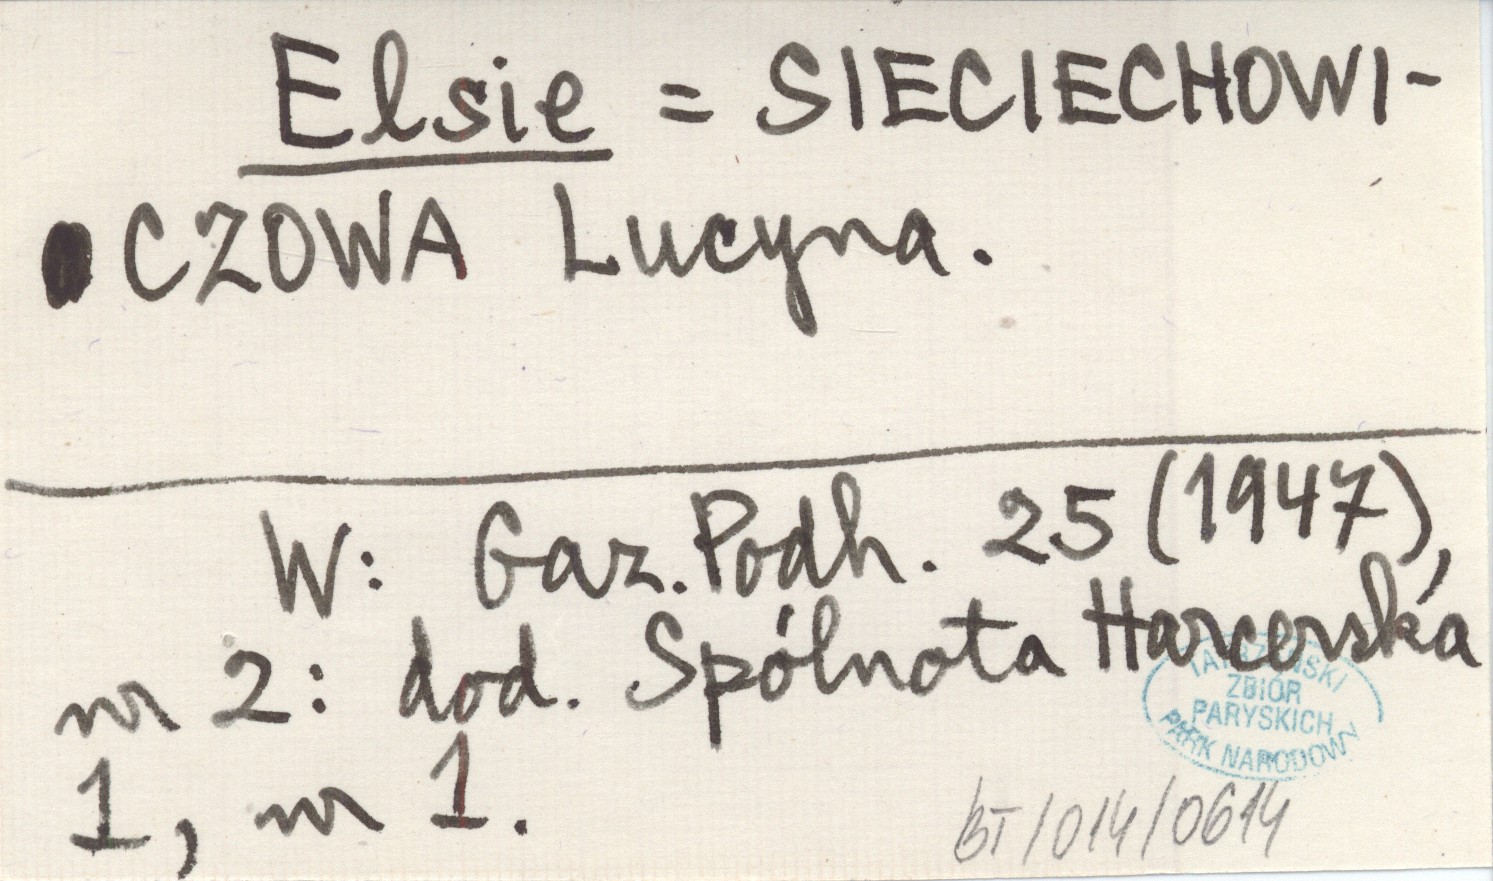 Elsie = SIECIECHOWI-
CZOWA Lucyna.
W: Gaz. Podh. 25 (1947),
nr 2: dod. Spólnota Harcerska
1, nr 1.
TATRZAŃSKI
ZBIÓR
PARYSKICH
PARK NARODOWY
BT/014/0614